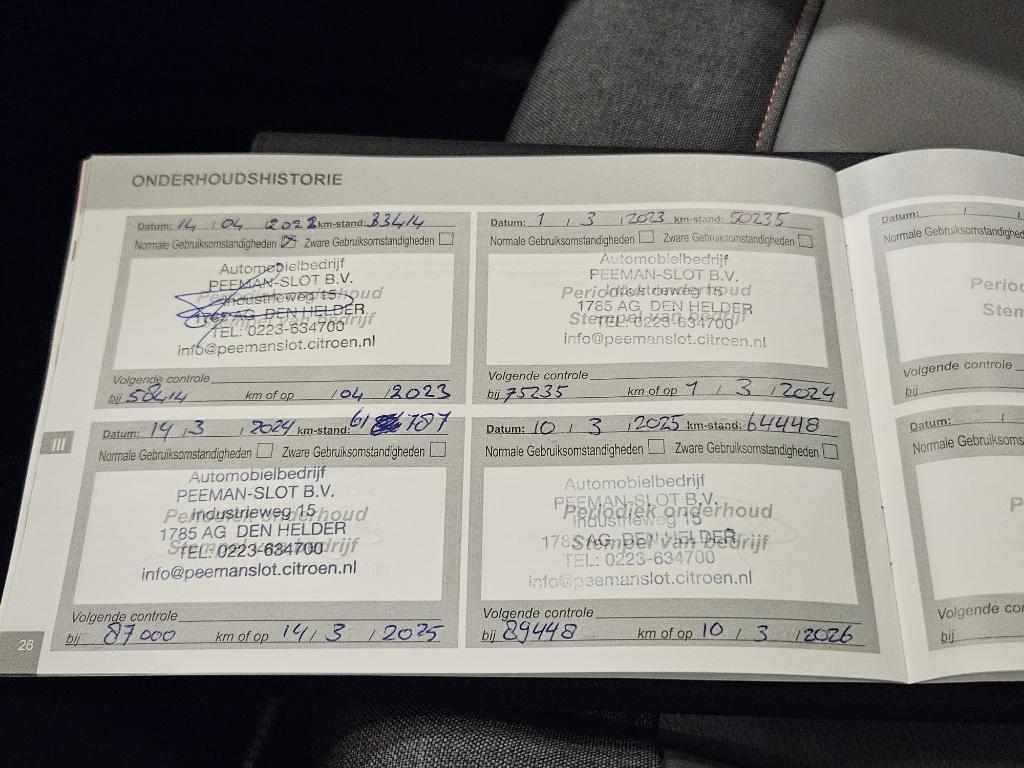 ONDERHOUDSHISTORIE
Datum: 14 / 04 / 2022 km-stand: 33414
Normale Gebruiksomstandigheden Zware Gebruiksomstandigheden
Automobielbedrijf
PEEMAN-SLOT B.V.
Periodiek onderhoud
Industrieweg 15
1785 AG DEN HELDER
Stempel van bedrijf
TEL: 0223-634700
info@peemanslot.citroen.nl
Volgende controle
bij 58414 km of op / 04 / 2023
Datum: 1 / 3 / 2023 km-stand: 50235
Normale Gebruiksomstandigheden Zware Gebruiksomstandigheden
Automobielbedrijf
PEEMAN-SLOT B.V.
Periodiek onderhoud
Industrieweg 15
1785 AG DEN HELDER
Stempel van bedrijf
TEL: 0223-634700
info@peemanslot.citroen.nl
Volgende controle
bij 75235 km of op 1 / 3 / 2024
III
Datum: 14 / 3 / 2024 km-stand: 61 787
Normale Gebruiksomstandigheden Zware Gebruiksomstandigheden
Automobielbedrijf
PEEMAN-SLOT B.V.
Industrieweg 15
Periodiek onderhoud
1785 AG DEN HELDER
Stempel van bedrijf
TEL: 0223-634700
info@peemanslot.citroen.nl
Volgende controle
bij 87000 km of op 14 / 3 / 2025
Datum: 10 / 3 / 2025 km-stand: 64448
Normale Gebruiksomstandigheden Zware Gebruiksomstandigheden
Automobielbedrijf
PEEMAN-SLOT B.V.
Periodiek onderhoud
Industrieweg 15
1785 AG DEN HELDER
Stempel van bedrijf
TEL: 0223-634700
info@peemanslot.citroen.nl
Volgende controle
bij 89448 km of op 10 / 3 / 2026
26
Datum: / /
Normale Gebruiksomstandighed
Period
Stem
Volgende controle
bij
Datum: /
Normale Gebruiksoms
Per
Ste
Volgende co
bij